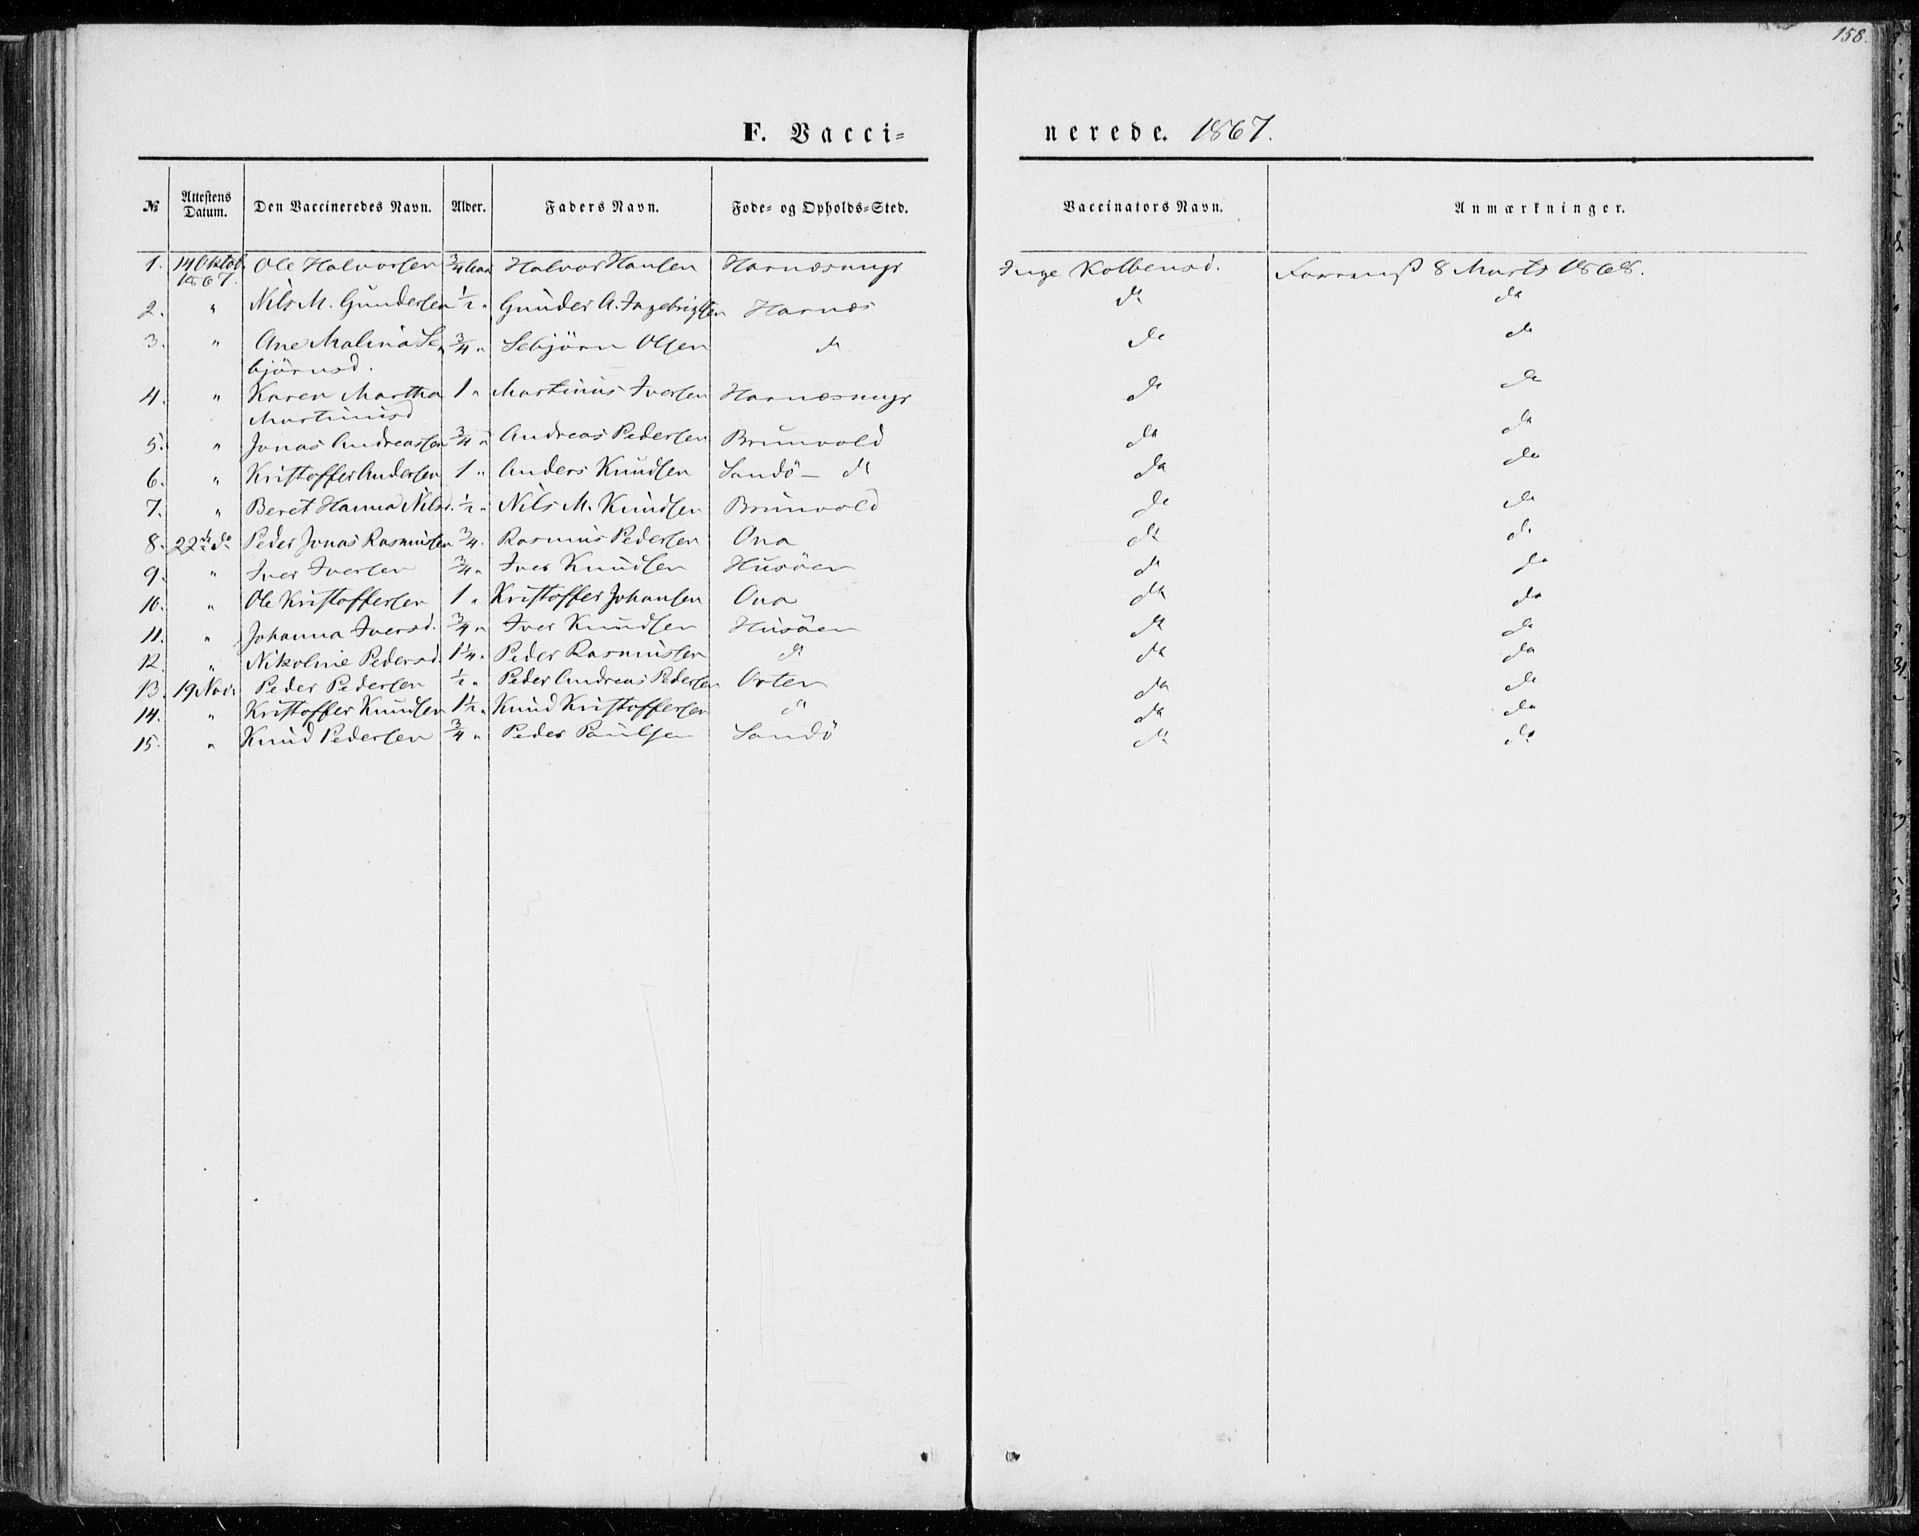 158.
F. Vacci=
nerede. 1867.
№ Attestens Datum. Den Vaccineredes Navn. Alder. Faders Navn. Føde- og Opholds-Sted. Vaccinators Navn. Anmærkninger.
1. 14 Oktob. 1867. Ole Halvorsen 3/4 Aar Halvor Hansen Harnæsmyr Inge Kolbensd. 8 Marts 1868.
2. " Nils M. Gundersen 1/2 " Gunder A. Ingebrigtsen Harnæs do do
3. " Ane Malina Se- 3/4 " Sebjörn Olsen do do do
björnsd.
4. " Karen Martha 1 " Martinus Iversen Harnæsmyr do do
Martinusd
5. " Jonas Andreassen 3/4 " Andreas Pedersen Brunvold do do
6. " Kristoffer Andersen 1 " Anders Knudsen Sandö - do do do
7. " Beret Hanna Nilsd. 1/2 " Nils M. Knudsen Brunvold do do
8. 22de do Peder Jonas Rasmussen 3/4 " Rasmus Pedersen Ona do do
9. " Iver Iversen 3/4 " Iver Knudsen Husöen do do
10. " Ole Kristoffersen 1 " Kristoffer Johansen Ona do do
11. " Johanna Iversd. 3/4 " Iver Knudsen Husöen do do
12. " Nikoline Pedersd. 1 1/4 " Peder Rasmussen do do do
13. 19 Nov. Peder Pedersen 1/2 " Peder Andreas Pedersen Orten do do
14. " Kristoffer Knudsen 1 1/2 " Knud Kristoffersen do do do
15. " Knud Pedersen 3/4 " Peder Paulsen Sandö do do